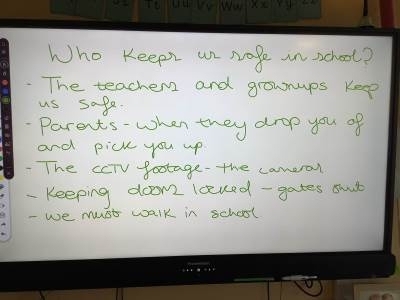 Who keeps us safe in school?
- The teachers and grownups keep
us safe.
- Parents - when they drop you of
and pick you up.
- The CCTV footage - the cameras
- Keeping doors locked - gates shut
- we must walk in school